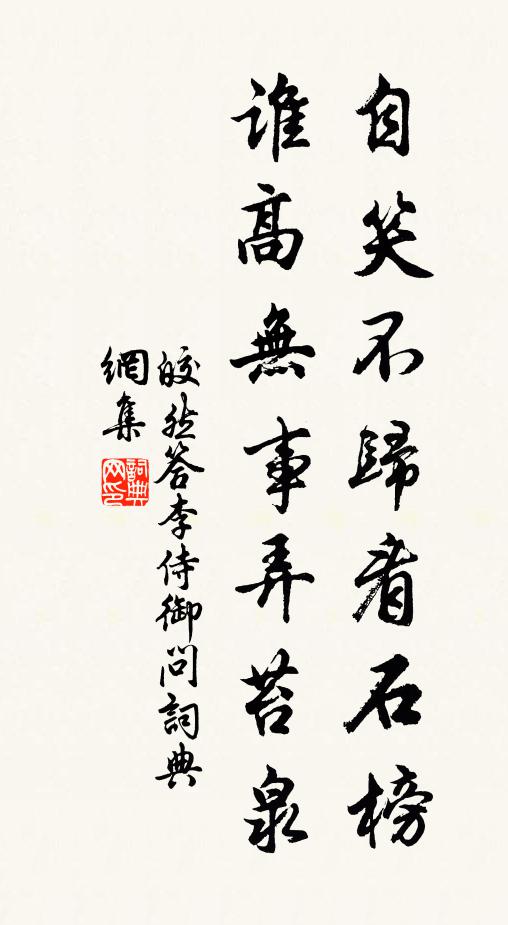 自笑不歸看石榜
誰高無事弄苔泉
皎然答李侍御問詞典
網集
詞典网印